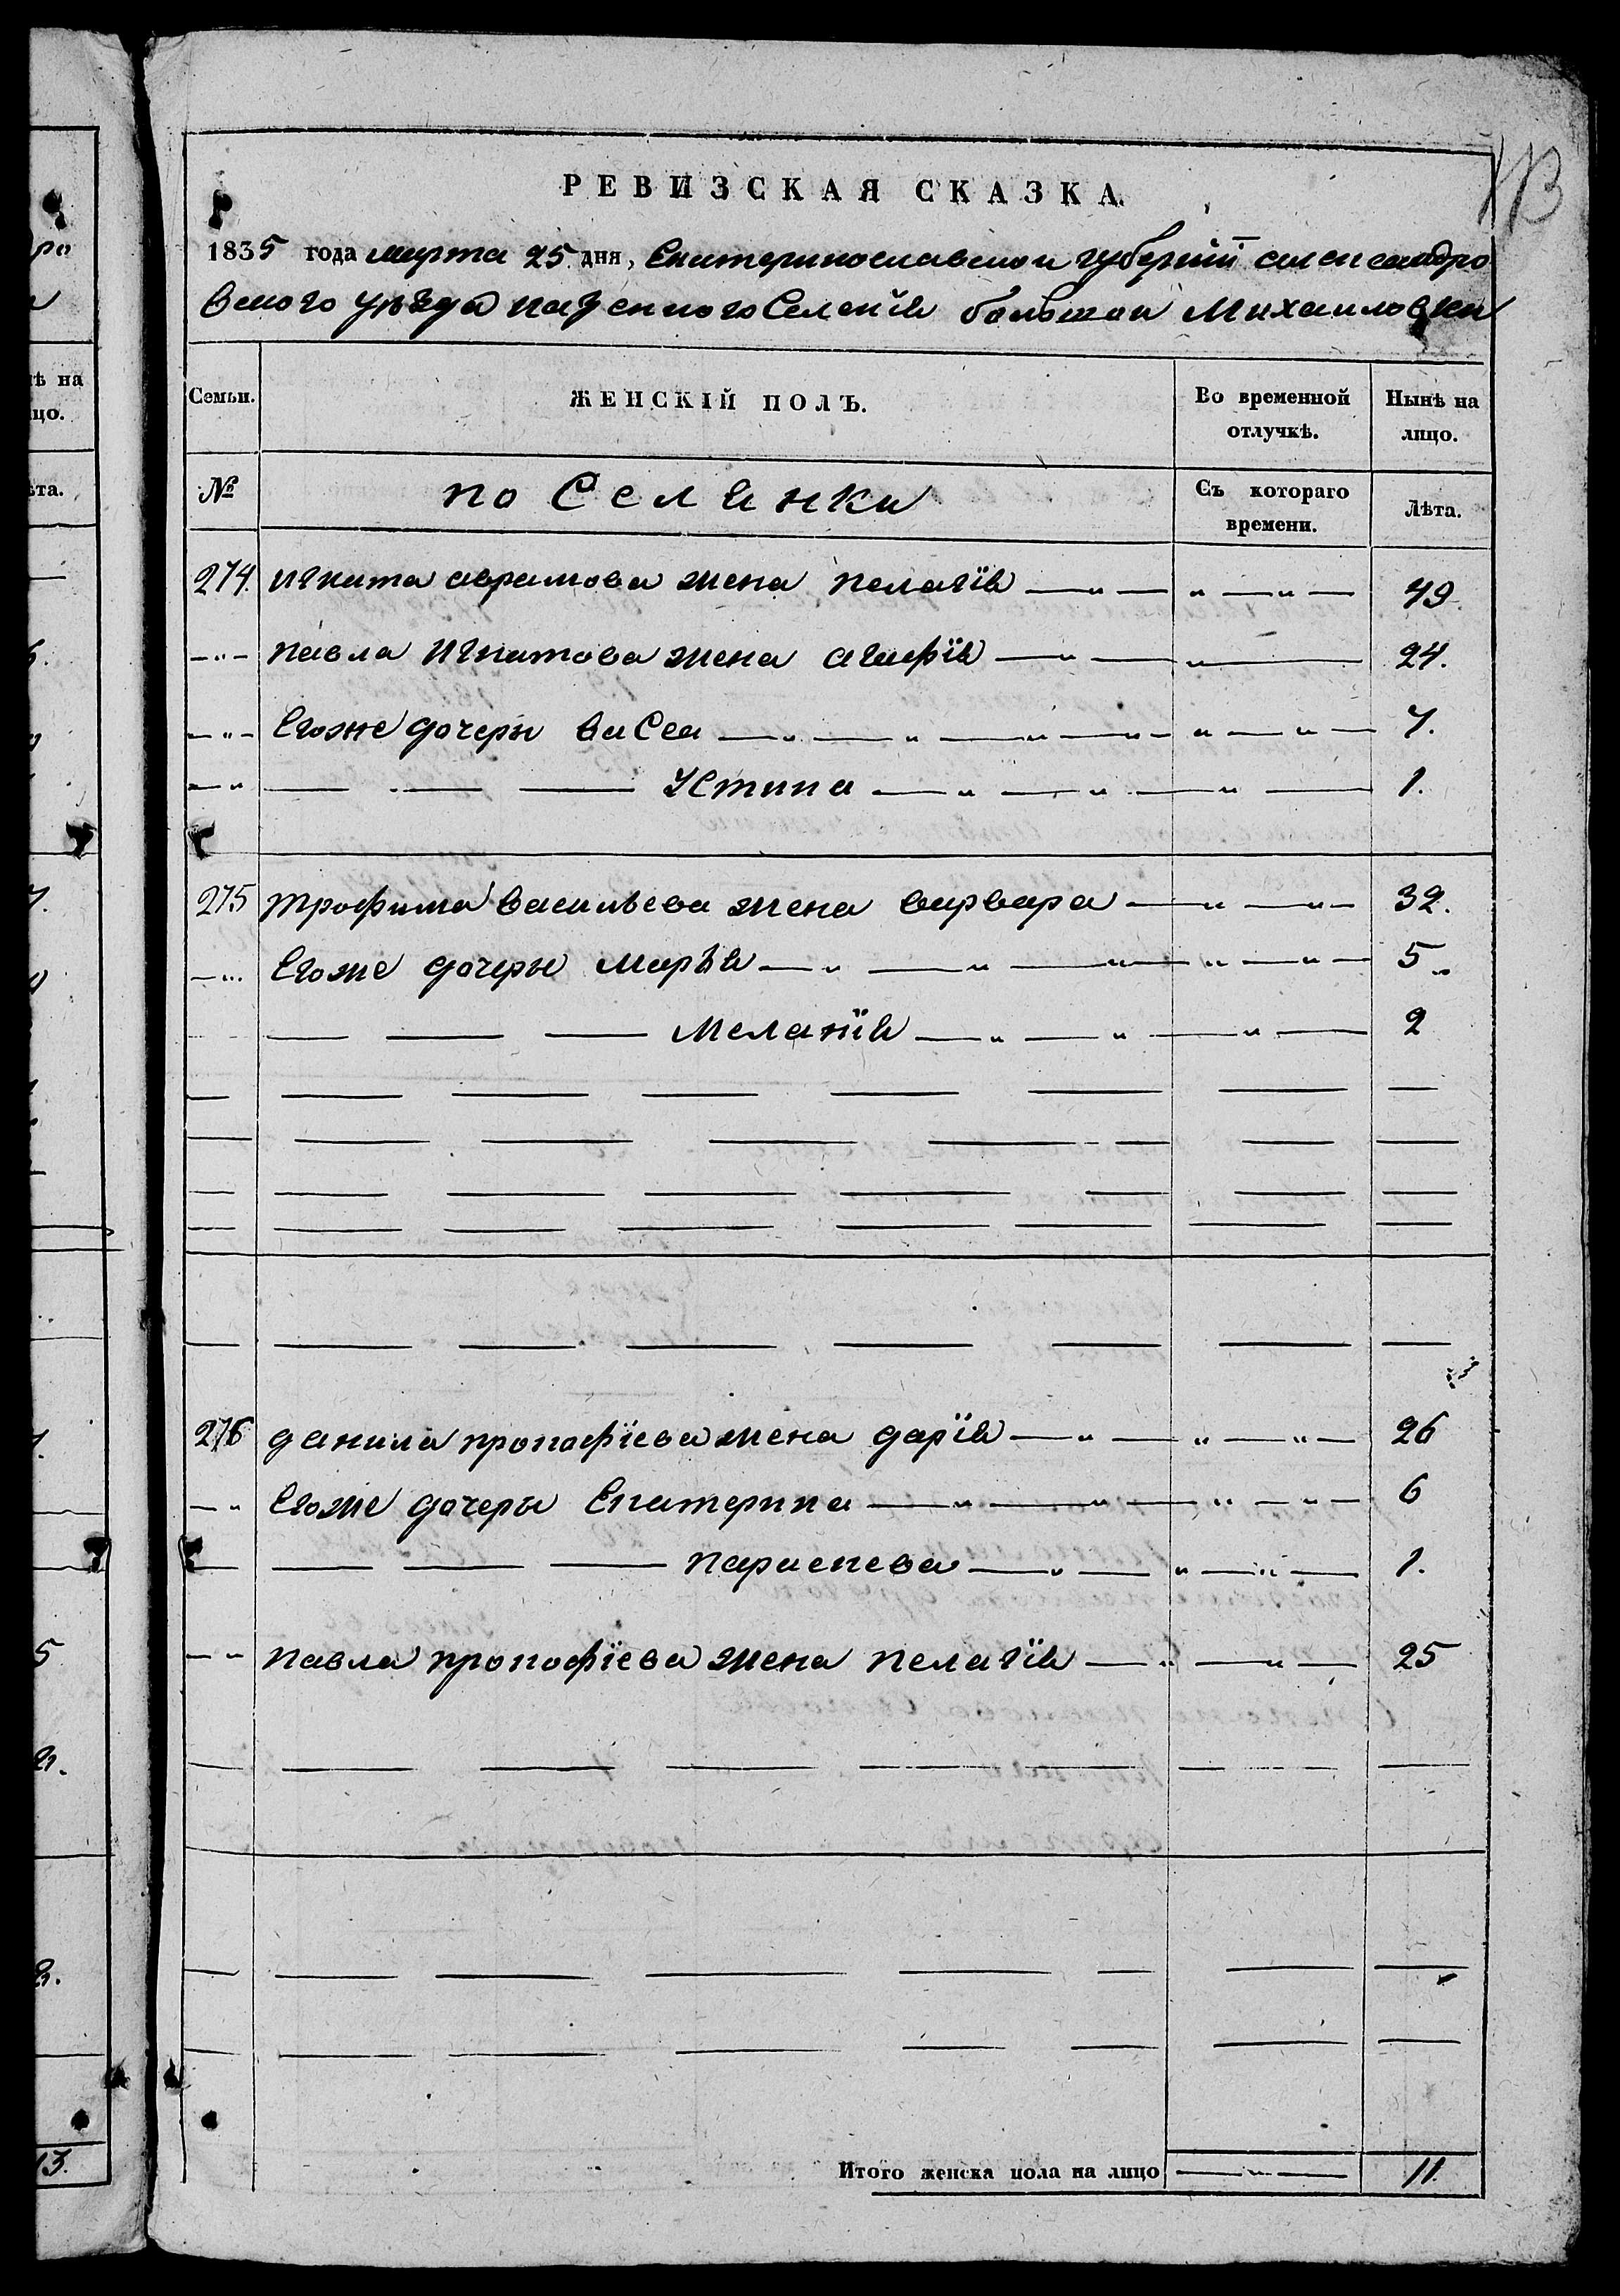 РЕВИЗСКАЯ СКАЗКА.
1835 года марта 25 дня, Екатеринославской губернiи александро
вского уѣзда казенного Селенiя большой Михаиловки
Семьи.
ЖЕНСКІЙ ПОЛЪ.
Во временной отлучкѣ.
Нынѣ на лицо.
№
поСелянки
Съ котораго времени.
Лѣта.
274. игната аврамова жена пелагiя — „ — „ — „ — 49
— „ — павла игнатова жена агафiя — „ — „ — 24.
— „ — Егоже дочеры васса — „ — „ — „ — „ — „ — „ — 7.
— „ — — — Устина — „ — „ — „ — 1.
275 трофима васильева жена варвара — „ — „ — 32.
— „ Егоже дочеры марья — „ — „ — „ — „ — „ — 5
— — — меланiя — „ — „ — „ — 2
276 данила прокофiева жена дарiя — „ — „ — „ — 26
— „ Егоже дочеры Екатерина — „ — „ — „ — „ — 6
— — — — параскева — „ — „ — „ — 1.
— „ павла прокофiева жена пелагiя — „ — „ — 25
Итого женска пола на лицо — „ — 11.